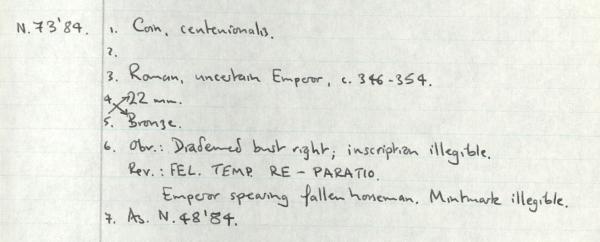 N.73'84. 1. Coin, centenionalis.
2.
3. Roman, uncertain Emperor, c. 346-354.
4. 22 mm.
5. Bronze.
6. Obv.: Diademed bust right; inscription illegible.
Rev.: FEL. TEMP. RE - PARATIO.
Emperor spearing fallen horseman. Mintmark illegible.
7. As. N.48'84.